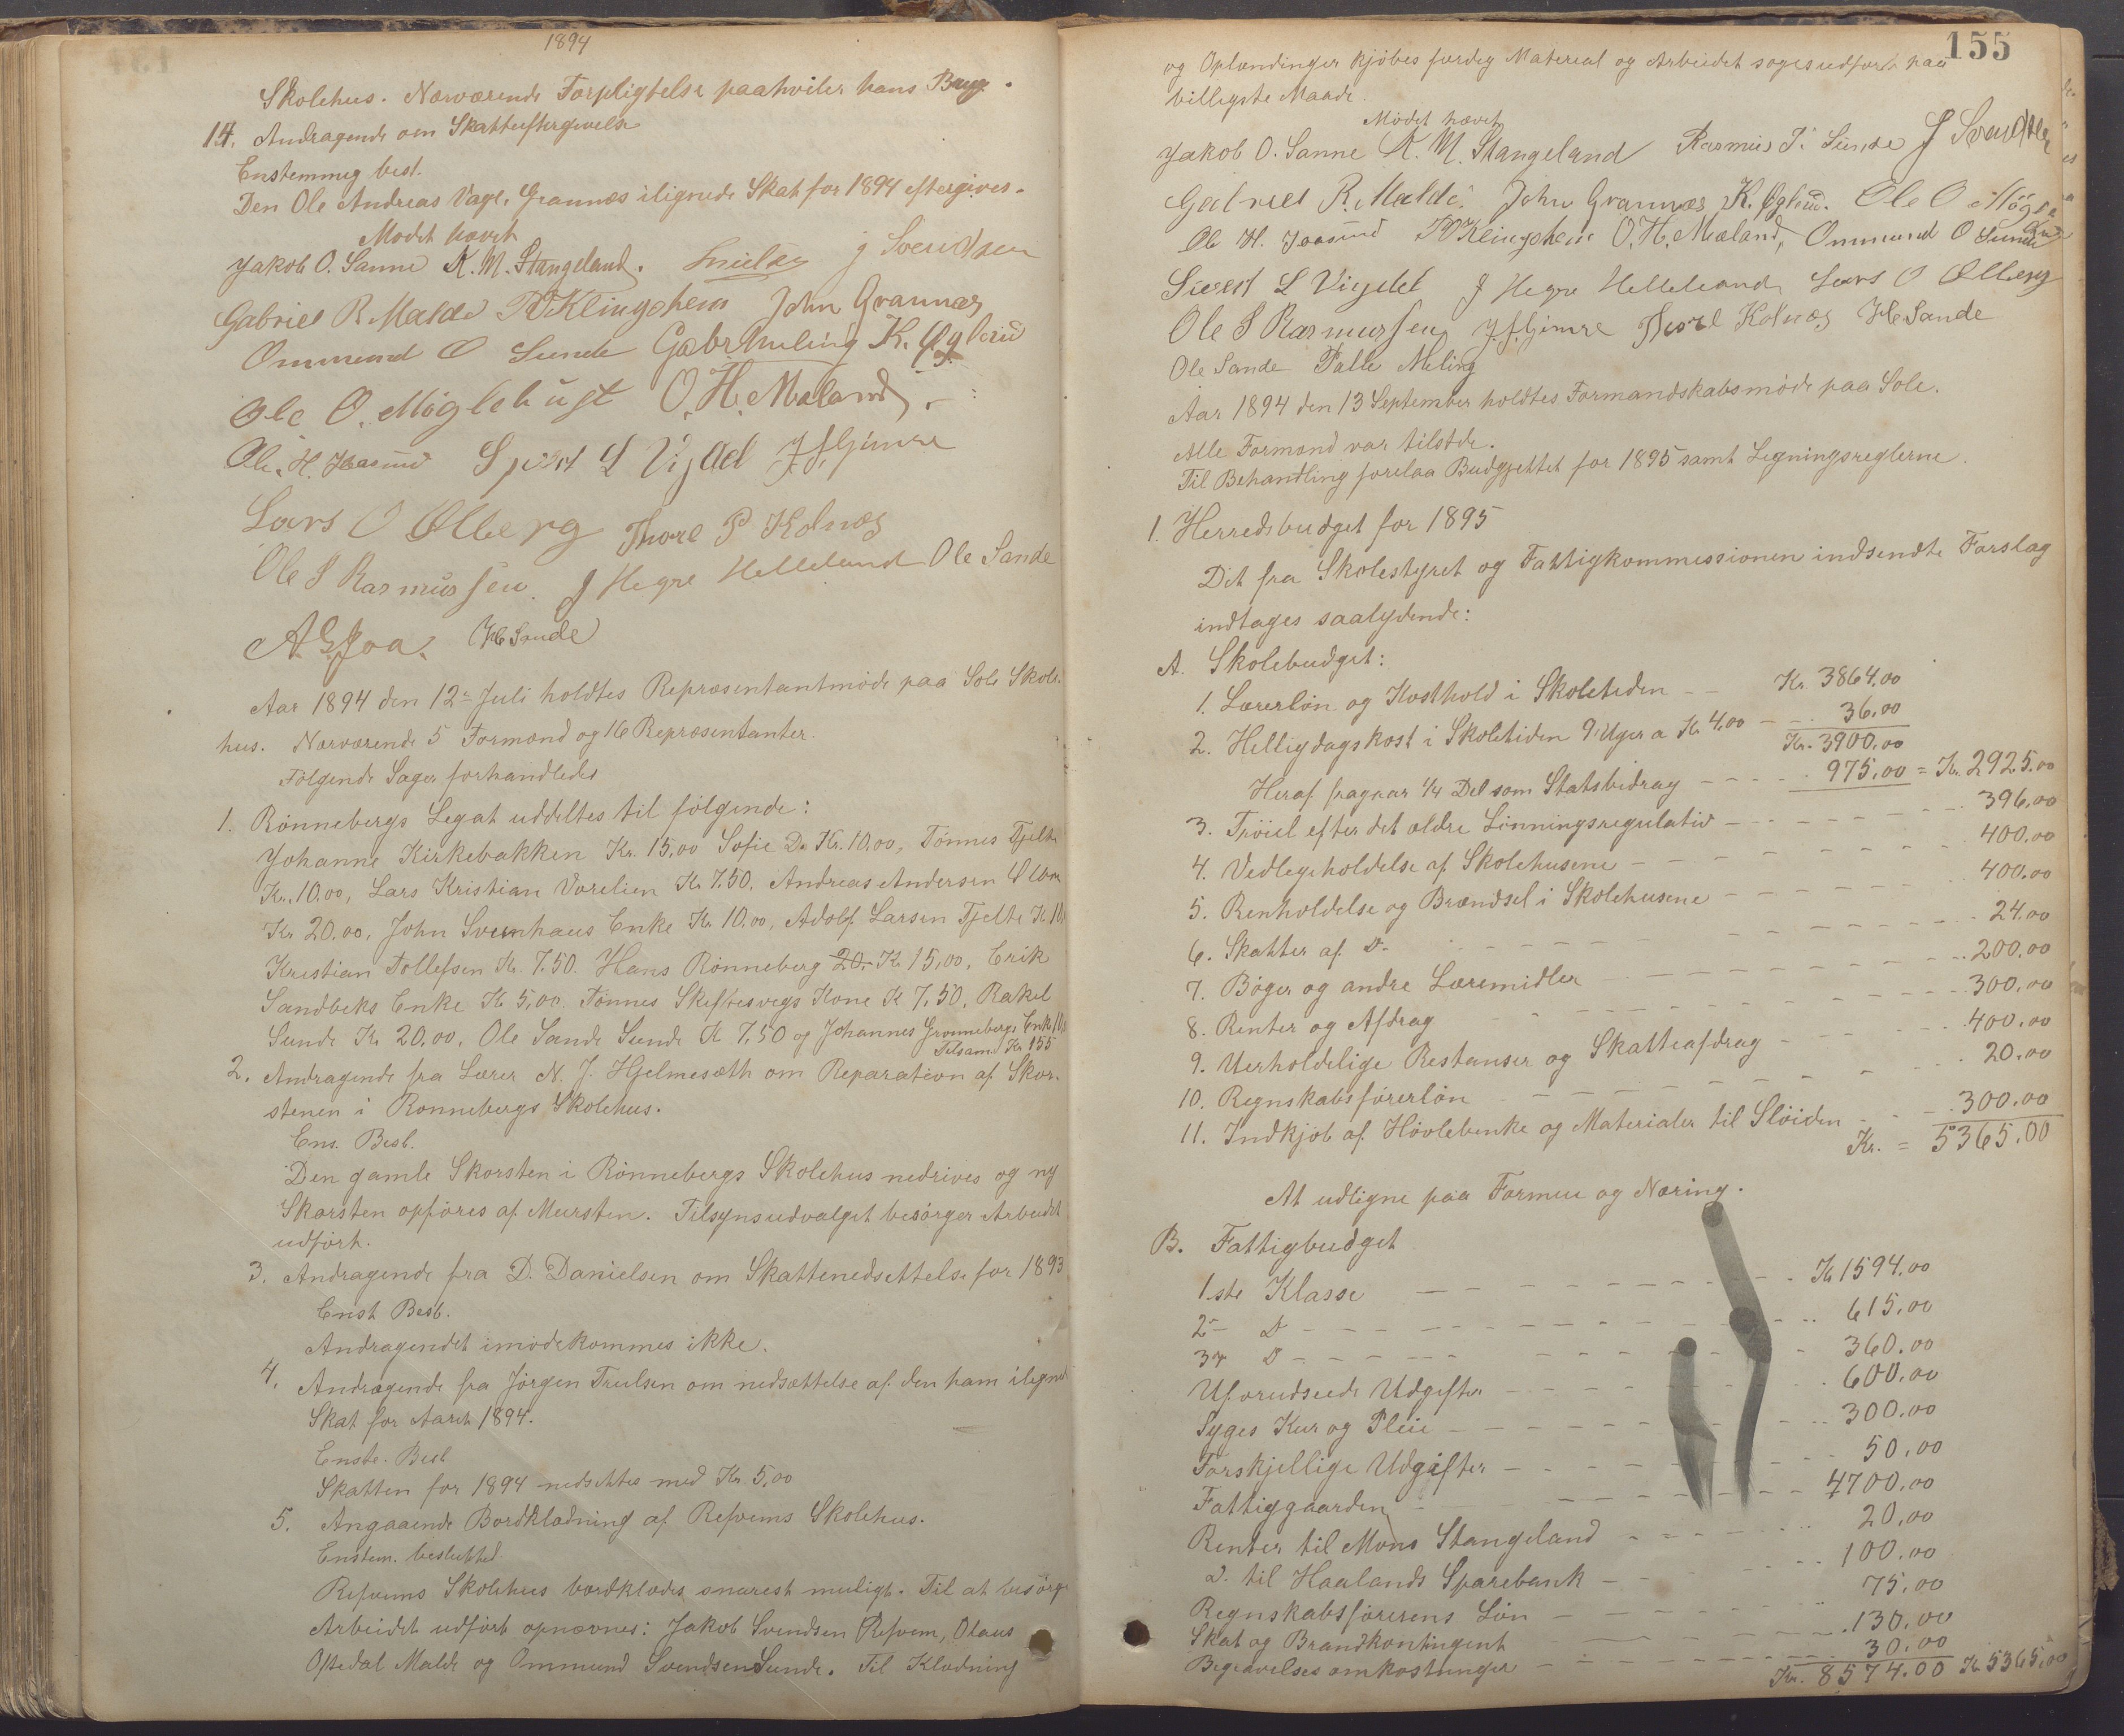 1894
Skolehus. Nærværende Forpligtelse paahviler hans Brug.
14. Andragende om Skatteeftergivelse
Enstemmig besl.
Den Ole Andreas Vage, Grannæs ilignede Skat for 1894 eftergives.
Mødet hævet
Jakob O. Sanne K. M. Stangeland. J Svendsen
Gabriel R. Malde John Grannæs
Ommund O Sunde Gabr Meling K.
Ole O. Møglebust O. H. Mæland
Ole. H. Joasund Sivert L Vigdel
Lars O Ølberg Thore P Kolnæs
Ole S Rasmussen. J Hegre Helleland Ole Sande
Aar 1894 den 12te Juli holdtes Repræsentantmøde paa Sole Skole-
hus. Nærværende 5 Formænd og 16 Repræsentanter.
Følgende Sager forhandledes
1. Rönnebergs Legat uddeltes til følgende:
Johanne Kirkebakken Kr. 15,00 Sofie Do Kr. 10,00, Tönnes Tjelta
Kr. 10,00, Lars Kristian Vorelien Kr 7.50, Andreas Andersen
Kr 20.00, John Sveinhaus Enke Kr. 10.00, Adolf Larsen Tjelte Kr 10
Kristian Tollefsen Kr. 7.50. Hans Rönneberg 20,- Kr 15,00, Erik
Sandbeks Enke Kr 5,00. Tönnes Skeftesvegs Kone K 7.50, Rakel
Sunde Kr 20.00, Ole Sande Sunde K 7,50 og Johannes Grønnebergs Enke 10
Tilsam. Kr 155
2. Andragende fra Lærer N. J. Hjelmesæth om Reparation af Skor-
stenen i Rønnebergs Skolehus.
Ens. Besl.
Den gamle Skorsten i Rønnebergs Skolehus nedrives og ny
Skorsten opføres af Mursten. Tilsynsudvalget besørger Arbeidet
udført.
3. Andragende fra D. Danielsen om Skattenedsettelse for 1893
Enst Besl.
Andragendet imødekommes ikke.
4. Andragende fra Jörgen Trulsen om nedsættelse af den ham ilignede
Skat for Aaret 1894.
Enste. Besl
Skatten for 1894 nedsettes med Kr. 5,00
5. Angaaende Bordklædning af Refvems Skolehus.
Enstem. besluttet
Refvems Skolehus bordklædes snarest muligt. Til at besørge
Arbeidet udført opnævnes: Jakob Svendsen Refvem, Olaus
Oftedal Malde og Ommund Svendsen Sunde. Til Klædning
155
og Oplændinger kjøbes færdig Material og Arbeidet søges udført paa
billigste Maade.
Mødet hævet
Jakob O. Sanne K. M. Stangeland Rasmus T. Sunde J Svendsen
Gabriel R. Malde. John Grannæs K. Ole O Mögle
bust
Ole H. Joasund O. H. Mæland, Ommund O Sunde
Sivert L Vigdel J Hegre Helleland Lars O Ølberg
Ole S Rasmussen Thore Kolnæs Sande
Ole Sande Palle Meling
Aar 1894 den 13 September holdtes Formandskabsmøde paa Sole.
Alle Formænd var tilstede.
Til Behandling forelaa Budgjettet for 1895 samt Legningsreglerne.
1. Herredsbudget for 1895
Det fra Skolestyret og Fattigkommissionen indsendte Forslag
indtages saalydende:
A. Skolebudget:
1. Lærerløn og Kosthold i Skoletiden - - Kr. 3864.00
2. Helligdagskost i Skoletiden 9 Uger a Kr 4.00 - - 36.00
Kr. 3900.00
Heraf fragaar 1/4 Del som Statsbidrag - - - - - 975.00 = Kr. 2925.00
3. efter det ældre Lønningsregulativ - - - - - - 396.00
4. Vedlegeholdelse af Skolehusene - - - - - - 400.00
5. Renholdelse og Brændsel i Skolehusene - - - - - - 400.00
6. Skatter af Do - - - - - - 24.00
7. Bøger og andre Læremidler - - - - - - 200.00
8. Renter og Afdrag - - - - - - 300.00
9. Uerholdelige Restanser og Skatteafdrag - - - - - 400.00
10. Regnskabsførerløn - - - - - - 20.00
11. Indkjøb af Høvlebenke og Materialer til Sløiden - - - 300.00
Kr. = 5365.00
At udligne paa Formue og Næring.
B. Fattigbudget
1ste Klasse - - - - - - Kr 1594.00
2- D - - - - - - 615.00
3die D - - - - - - 360.00
Uforudseede Udgifter - - - - - 600.00
Syges Kur og Pleie - - - - - - 300.00
Forskjellige Udgifter - - - - - 50.00
Fattiggaarden - - - - - - 4700.00
Renter til Mons Stangeland - - - - - 20.00
D. til Haalands Sparebank - - - - - 100.00
Regnskabsførerens Løn - - - - - 75.00
Skat og Brandkontingent - - - - - 130.00
Begravelsesomkostninger - - - - - 30.00
Kr. 8574.00 Kr 5365,00